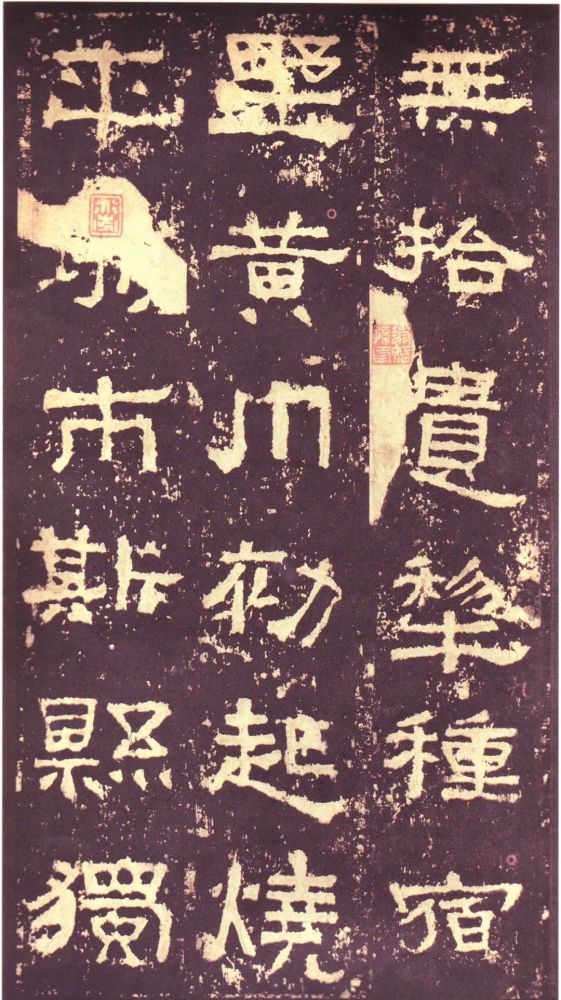 無拾遺犁種宿
野黃巾初起燒
平城市斯縣獨